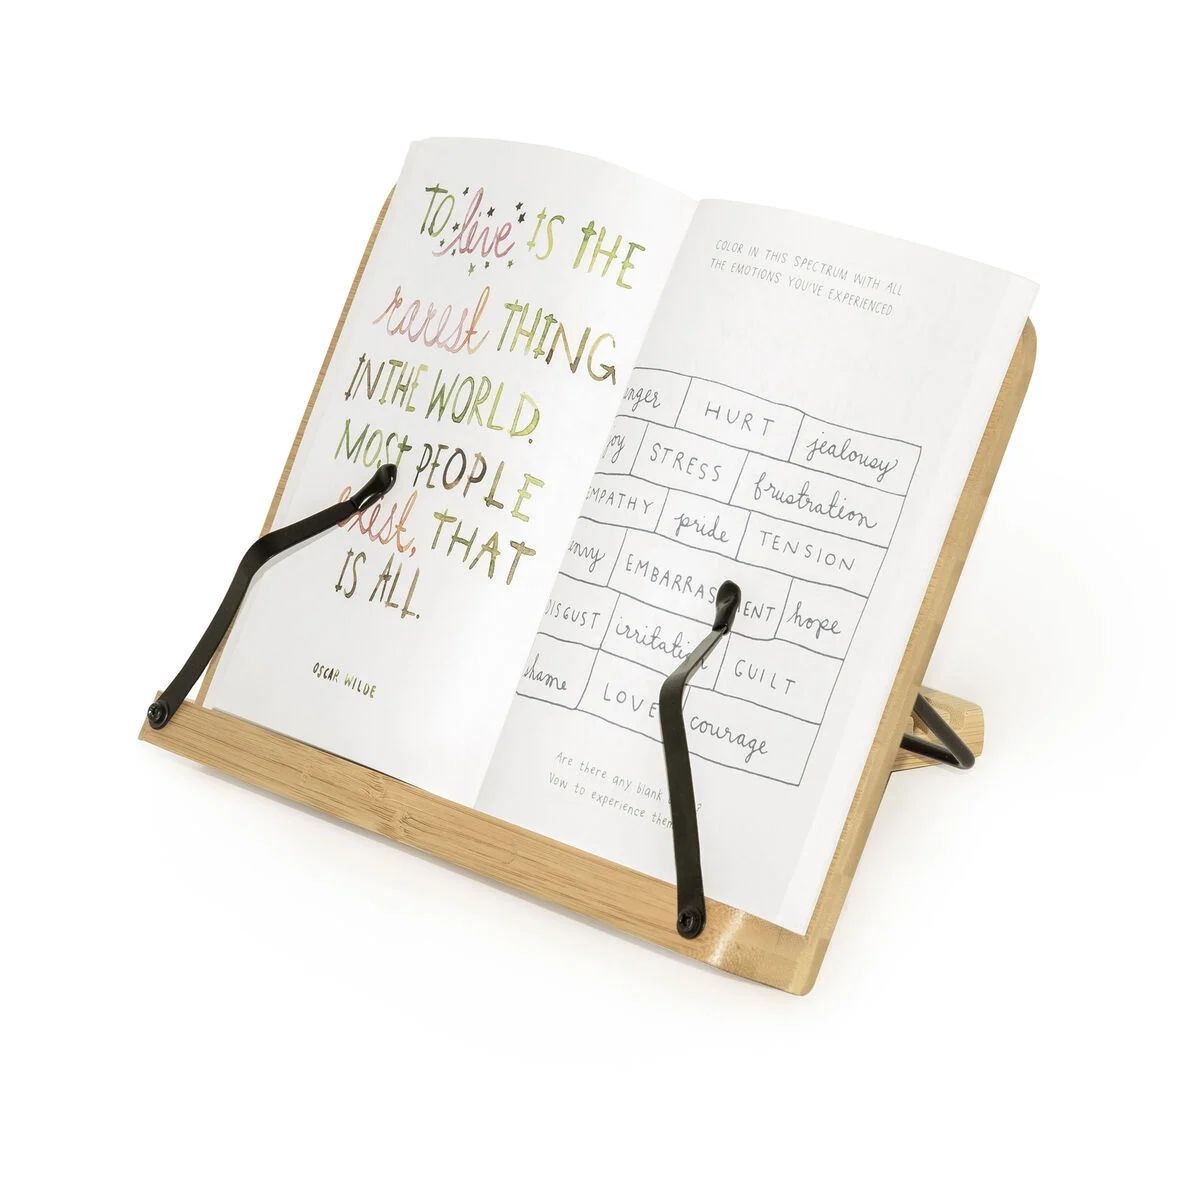 TO live IS THE
rarest THING
IN THE WORLD.
MOST PEOPLE
exist, THAT
IS ALL.
OSCAR WILDE
COLOR IN THIS SPECTRUM WITH ALL
THE EMOTIONS YOU'VE EXPERIENCED
anger HURT jealousy
joy STRESS frustration
EMPATHY pride TENSION
envy EMBARRASSMENT hope
DISGUST irritation GUILT
shame LOVE courage
Are there any blank
Vow to experience them